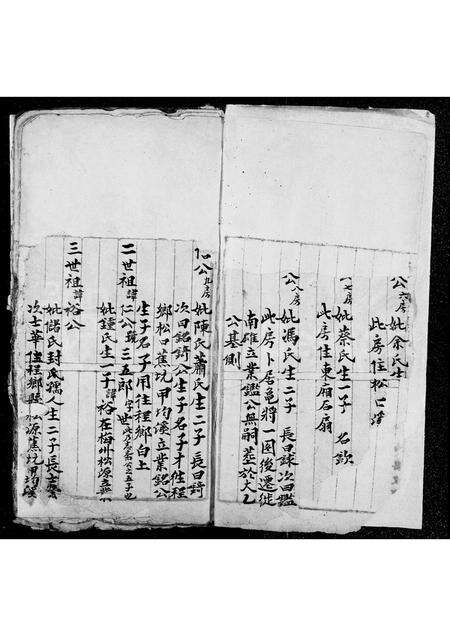 公 六房 妣余氏
此房住松口
七房 妣蔡氏生一子 名欽
此房住東廂石扇
公 八房 妣馮氏生二子 長曰球次曰鑑
此房卜居亀將一圖後遷徙
南雄立業鑑公無嗣葬於大
公基側
仁公 九房 妣陳氏蕭氏生二子 長曰錡
次曰銘錡公生子名子才住程
鄉松口蕉坑甲均溪立業銘公
生子名子用住程鄉白上
二世祖 諱仁公號三五郎
妣鍾氏生一子諱裕在梅州松源立業
三世祖 諱裕公
妣儲氏封孺人生二子長士
次士華住程鄉縣松源蕉坑甲均溪